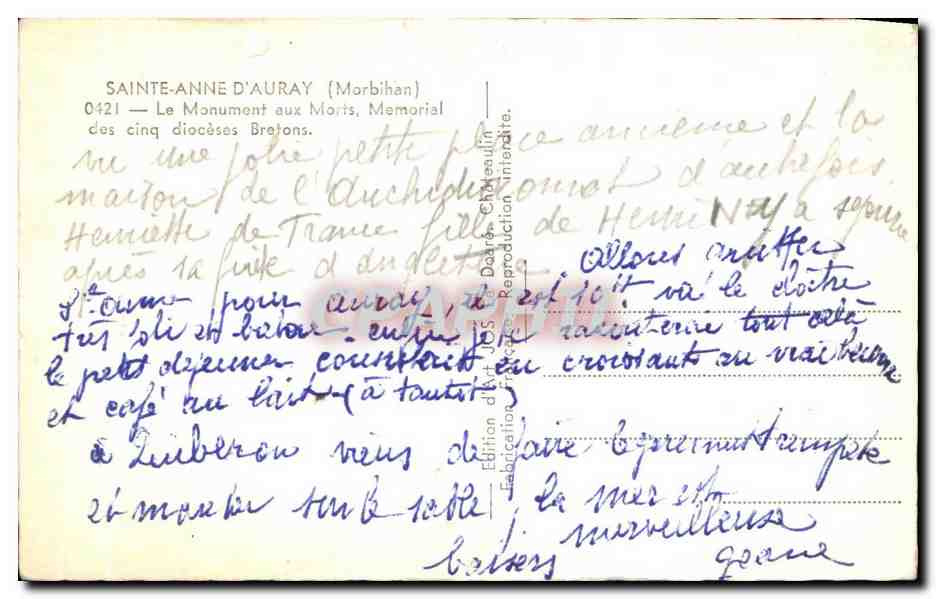 SAINTE-ANNE D'AURAY (Morbihan)
0421 — Le Monument aux Morts, Memorial
des cinq diocèses Bretons.
vu une jolie petite place ancienne et la
maison de l' d'autrefois
Henriette de France fille de Henri IV y a séjourné
après sa d'angleterre
allons quitter
Ste anne pour auray, il est 10H vu le cloître
très joli et bato enfin je raconterai tout cela
le petit déjeuner consistait en croissants au vrai beurre
et café au lait (à tantôt)
à Quiberon viens de faire la première trempete
et marcher sur le sable, la mer est
merveilleuse
baisers
Edition d'Art JOS Le Doaré, Châteaulin
Fabrication Française Reproduction interdite.
CPAPHIL